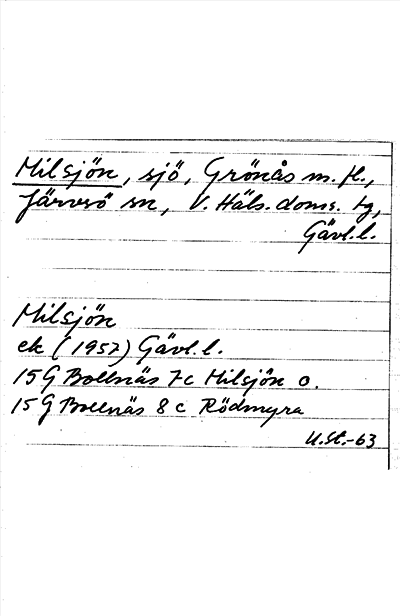 Milsjön, sjö, Grönås m. fl.,
Järvsö sn, V. Häls. doms. tg,
Gävl. l.
Milsjön
ek (1957) Gävl. l.
15 G Bollnäs 7c Milsjön o.
15 G Bollnäs 8 c Rödmyra
U.St.-63